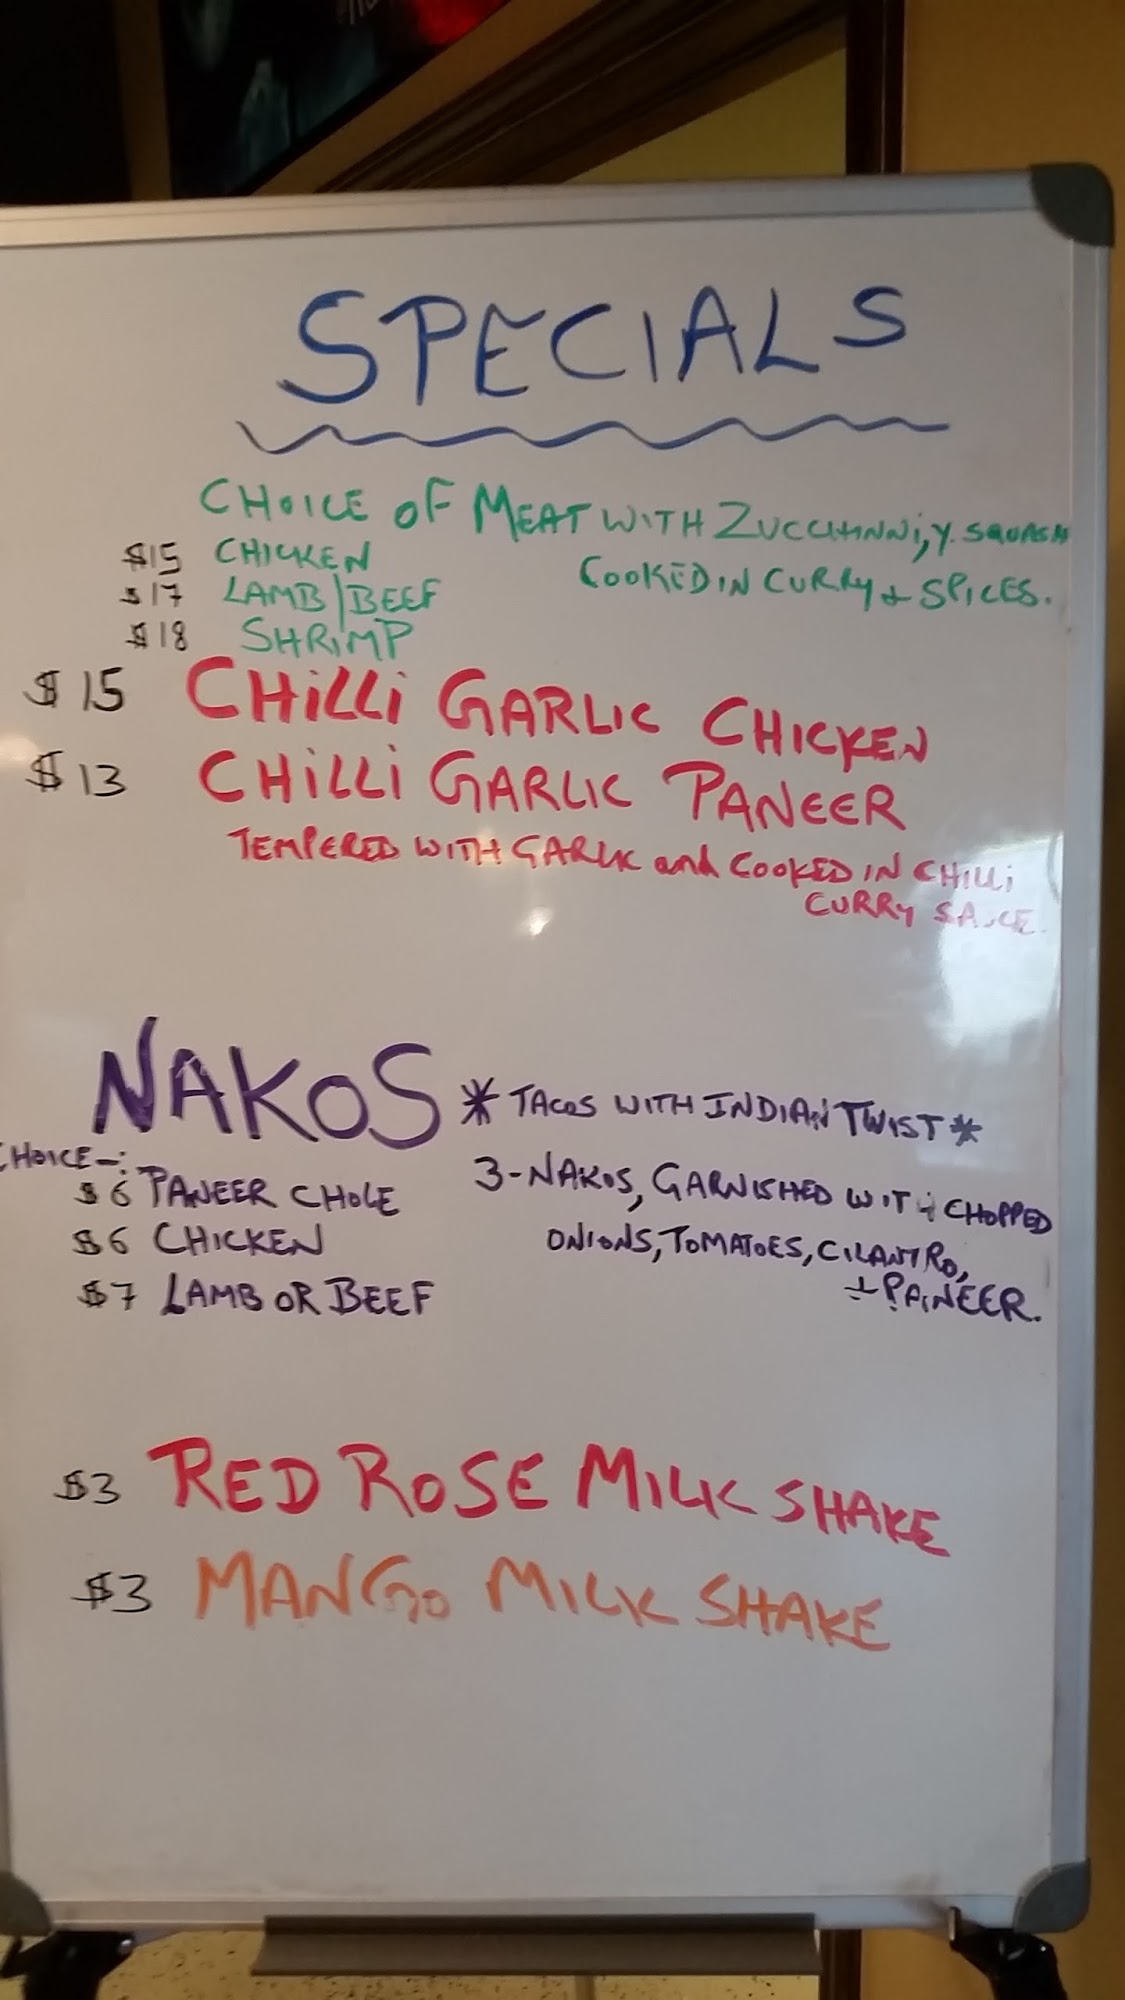 SPECIALS
CHOICE OF MEAT WITH ZUCCHINNI, Y. SQUASH
COOKED IN CURRY & SPICES.
$15 CHICKEN
$17 LAMB/BEEF
$18 SHRIMP
$15 CHILLI GARLIC CHICKEN
$13 CHILLI GARLIC PANEER
TEMPERED WITH GARLIC and COOKED IN CHILLI
CURRY SAUCE.
NAKOS * TACOS WITH INDIAN TWIST *
CHOICE-:
3-NAKOS, GARNISHED WITH CHOPPED
ONIONS, TOMATOES, CILANTRO,
& PANEER.
$6 PANEER CHOLE
$6 CHICKEN
$7 LAMB OR BEEF
$3 RED ROSE MILK SHAKE
$3 MANGO MILK SHAKE